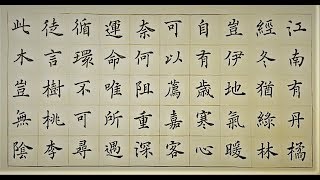 江南有丹橘
經冬猶綠林
豈伊地氣暖
自有歲寒心
可以薦嘉客
奈何阻重深
運命唯所遇
循環不可尋
徒言樹桃李
此木豈無陰